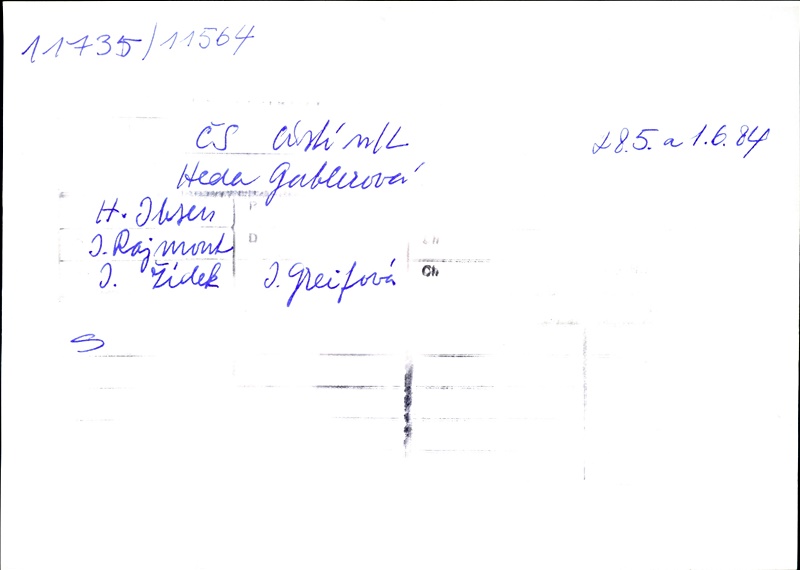 11735/11564
ČS Ústí n/L
28.5. a 1.6.84
Heda Gablerová
H. Ibsen
P
I. Rajmont
D
Zh
J. Žídek J. Greifová
Ch
S